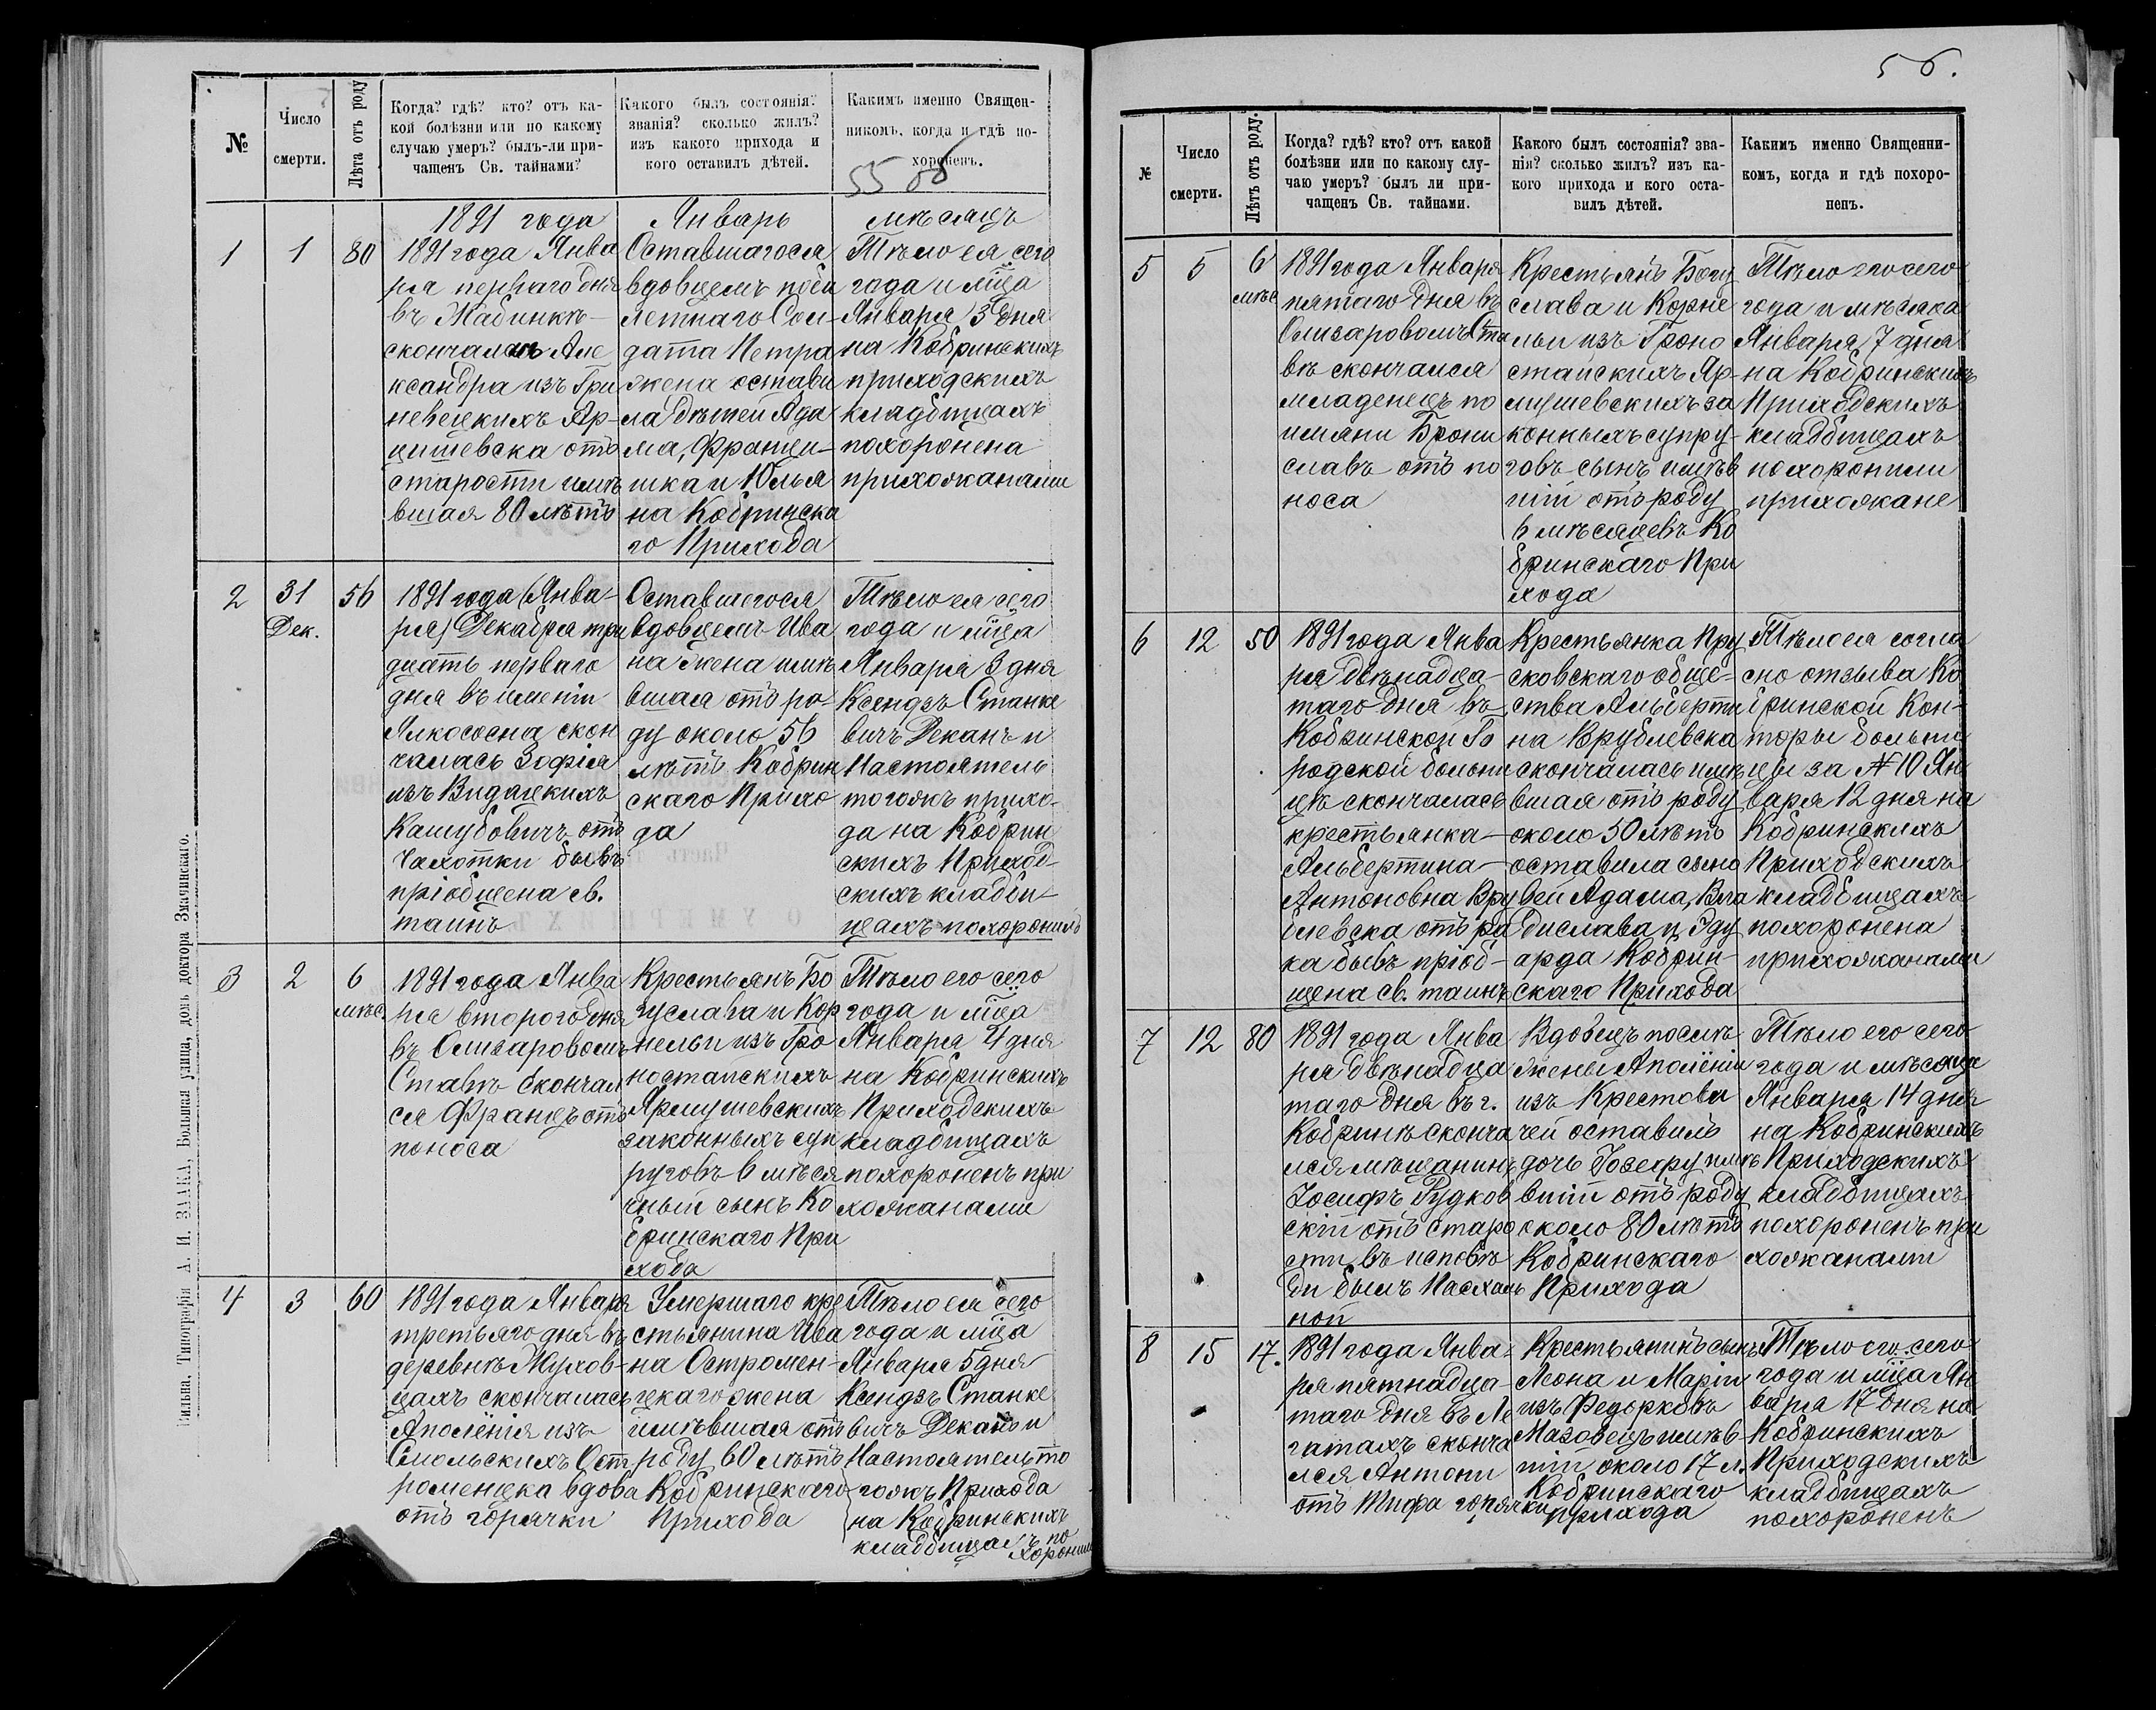 №
Число
смерти.
Лѣта отъ роду
Когда? гдѣ? кто? отъ ка-
кой болѣзни или по какому
случаю умеръ? былъ-ли при-
чащенъ Св. тайнами?
Какого былъ состоянія?
званія? сколько жилъ?
изъ какого прихода и
кого оставилъ дѣтей.
Какимъ именно Священ-
никомъ, когда и гдѣ по-
хороненъ.
55
1891 года Январь мѣсяцъ
1
1
80
1891 года Янва
ря перваго дня
въ Жабинкѣ
скончалась Але
ксандра изъ Гри
невецкихъ Яр-
цишевска отъ
старости имѣ
вшая 80 лѣтъ
Оставшагося
вдовцемъ
летнаго Сол-
дата Петра
жена остави
ла дѣтей Ада
ма, Францы-
шка и Юлья
на Кобринска
го Прихода
Тѣло ея сего
года и мца
Января 3 дня
на Кобринскихъ
приходскихъ
кладбищахъ
похоронена
прихожанами
2
31
Дек.
56
1891 года (Янва-
ря) Декабря три
дцать перваго
дня въ имѣніи
скон
чалась Зофія
изъ Видацкихъ
Кашубовичъ отъ
Чахотки бывъ
пріобщена св.
таинъ
Оставшегося
вдовцемъ Ива
на жена имѣ
вшая отъ ро-
ду около 56
лѣтъ Кобрин
скаго Прихо
да
Тѣло ея сего
года и мца
Января 3 дня
Ксендзъ Станке
вичъ Деканъ и
Настоятель
тогожъ прихо-
да на Кобрин
скихъ Приход-
скихъ кладби-
щахъ похоронилъ
3
2
6
мѣс.
1891 года Янва
ря второго дня
въ Олизаровомъ
Ставѣ скончал
ся Францъ отъ
поноса
Крестьянъ Бо
гуслава и Кор
нельи изъ Гро
ностайскихъ
Ярмушевскихъ
законныхъ суп
руговъ 6 мѣся
чный сынъ Ко
бринскаго При
хода
Тѣло его сего
года и мца
Января 4 дня
на Кобринскихъ
Приходскихъ
кладбищахъ
похороненъ при
хожанами
4
3
60
1891 года Января
третьяго дня въ
деревнѣ Жухов-
цахъ скончалась
Аполёнія изъ
Смольскихъ Ост
роменцка вдова
отъ горячки
Умершаго кре
стьянина Ива
на Остромен-
цкаго жена
имѣвшая отъ
роду 60 лѣтъ
Кобринскаго
Прихода
Тѣло ея сего
года и мца
Января 5 дня
Ксендзъ Станке
вичъ Деканъ и
Настоятель то
гожъ Прихода
на Кобринскихъ
кладбищахъ по
хоронилъ
Вильна, Типографія А. И. ЗААКА, Большая улица, домъ доктора Змачинскаго.
56.
№
Число
смерти.
Лѣтъ отъ роду.
Когда? гдѣ? кто? отъ какой
болѣзни или по какому слу-
чаю умеръ? былъ ли при-
чащенъ Св. тайнами.
Какого былъ состоянія? зва-
нія? сколько жилъ? изъ ка-
кого прихода и кого оста-
вилъ дѣтей.
Какимъ именно Священни-
комъ, когда и гдѣ похоро-
ненъ.
5
5
6
мѣс
1891 года Января
пятаго дня въ
Олизаровомъ Ста
вѣ скончался
младенецъ по
имяни Брони
славъ отъ по
носа
Крестьянъ Богу
слава и Корне
льи изъ Гроно
стайскихъ Яр-
мушевскихъ за
конныхъ супру-
говъ сынъ имѣв
шій отъ роду
6 мѣсяцевъ Ко
бринскаго При
хода
Тѣло его сего
года и мѣсяца
Января 7 дня
на Кобринскихъ
Приходскихъ
кладбищахъ
похоронили
прихожане
6
12
50
1891 года Янва
ря двѣнадца-
таго дня въ
Кобринской Го
родской больни
цѣ скончалась
крестьянка
Альбертина
Антоновна Вру
блевска отъ ра
ка бывъ пріоб-
щена св. таинъ
Крестьянка Пру
сковскаго обще-
ства Альберти
на Врублевска
скончалась имѣ
вшая отъ роду
около 50 лѣтъ
оставила сыно
вей Адама, Вла
дислава и Эду
арда Кобрин-
скаго Прихода
Тѣло ея согла
сно отзыва Ко
бринской Кон-
торы больни
цы за № 10 Ян
варя 12 дня на
Кобринскихъ
Приходскихъ
кладбищахъ
похоронена
прихожанами
7
12
80
1891 года Янва
ря двѣнадца
таго дня въ г.
Кобринѣ сконча
лся мѣщанинъ
Іосифъ Рудков
скій отъ старо
сти, въ исповѣ
ди былъ Пасхаль
ной
Вдовецъ послѣ
жены Аполёніи
изъ Крестови
чей оставилъ
дочь Іозефу имѣ
вшій отъ роду
около 80 лѣтъ
Кобринскаго
Прихода
Тѣло его сего
года и мѣсяца
Января 14 дня
на Кобринскихъ
Приходскихъ
кладбищахъ
похороненъ при
хожанами
8
15
17.
1891 года Янва-
ря пятнадца-
таго дня въ Ле
гатахъ сконча
лся Антони
отъ Тифа горячки
Крестьянинъ сынъ
Леона и Маріи
изъ Федорковъ
Мазовецъ имѣв-
шій около 17 л.
Кобринскаго
прихода
Тѣло его сего
года и мца Ян
варя 17 дня на
Кобринскихъ
Приходскихъ
кладбищахъ
похороненъ